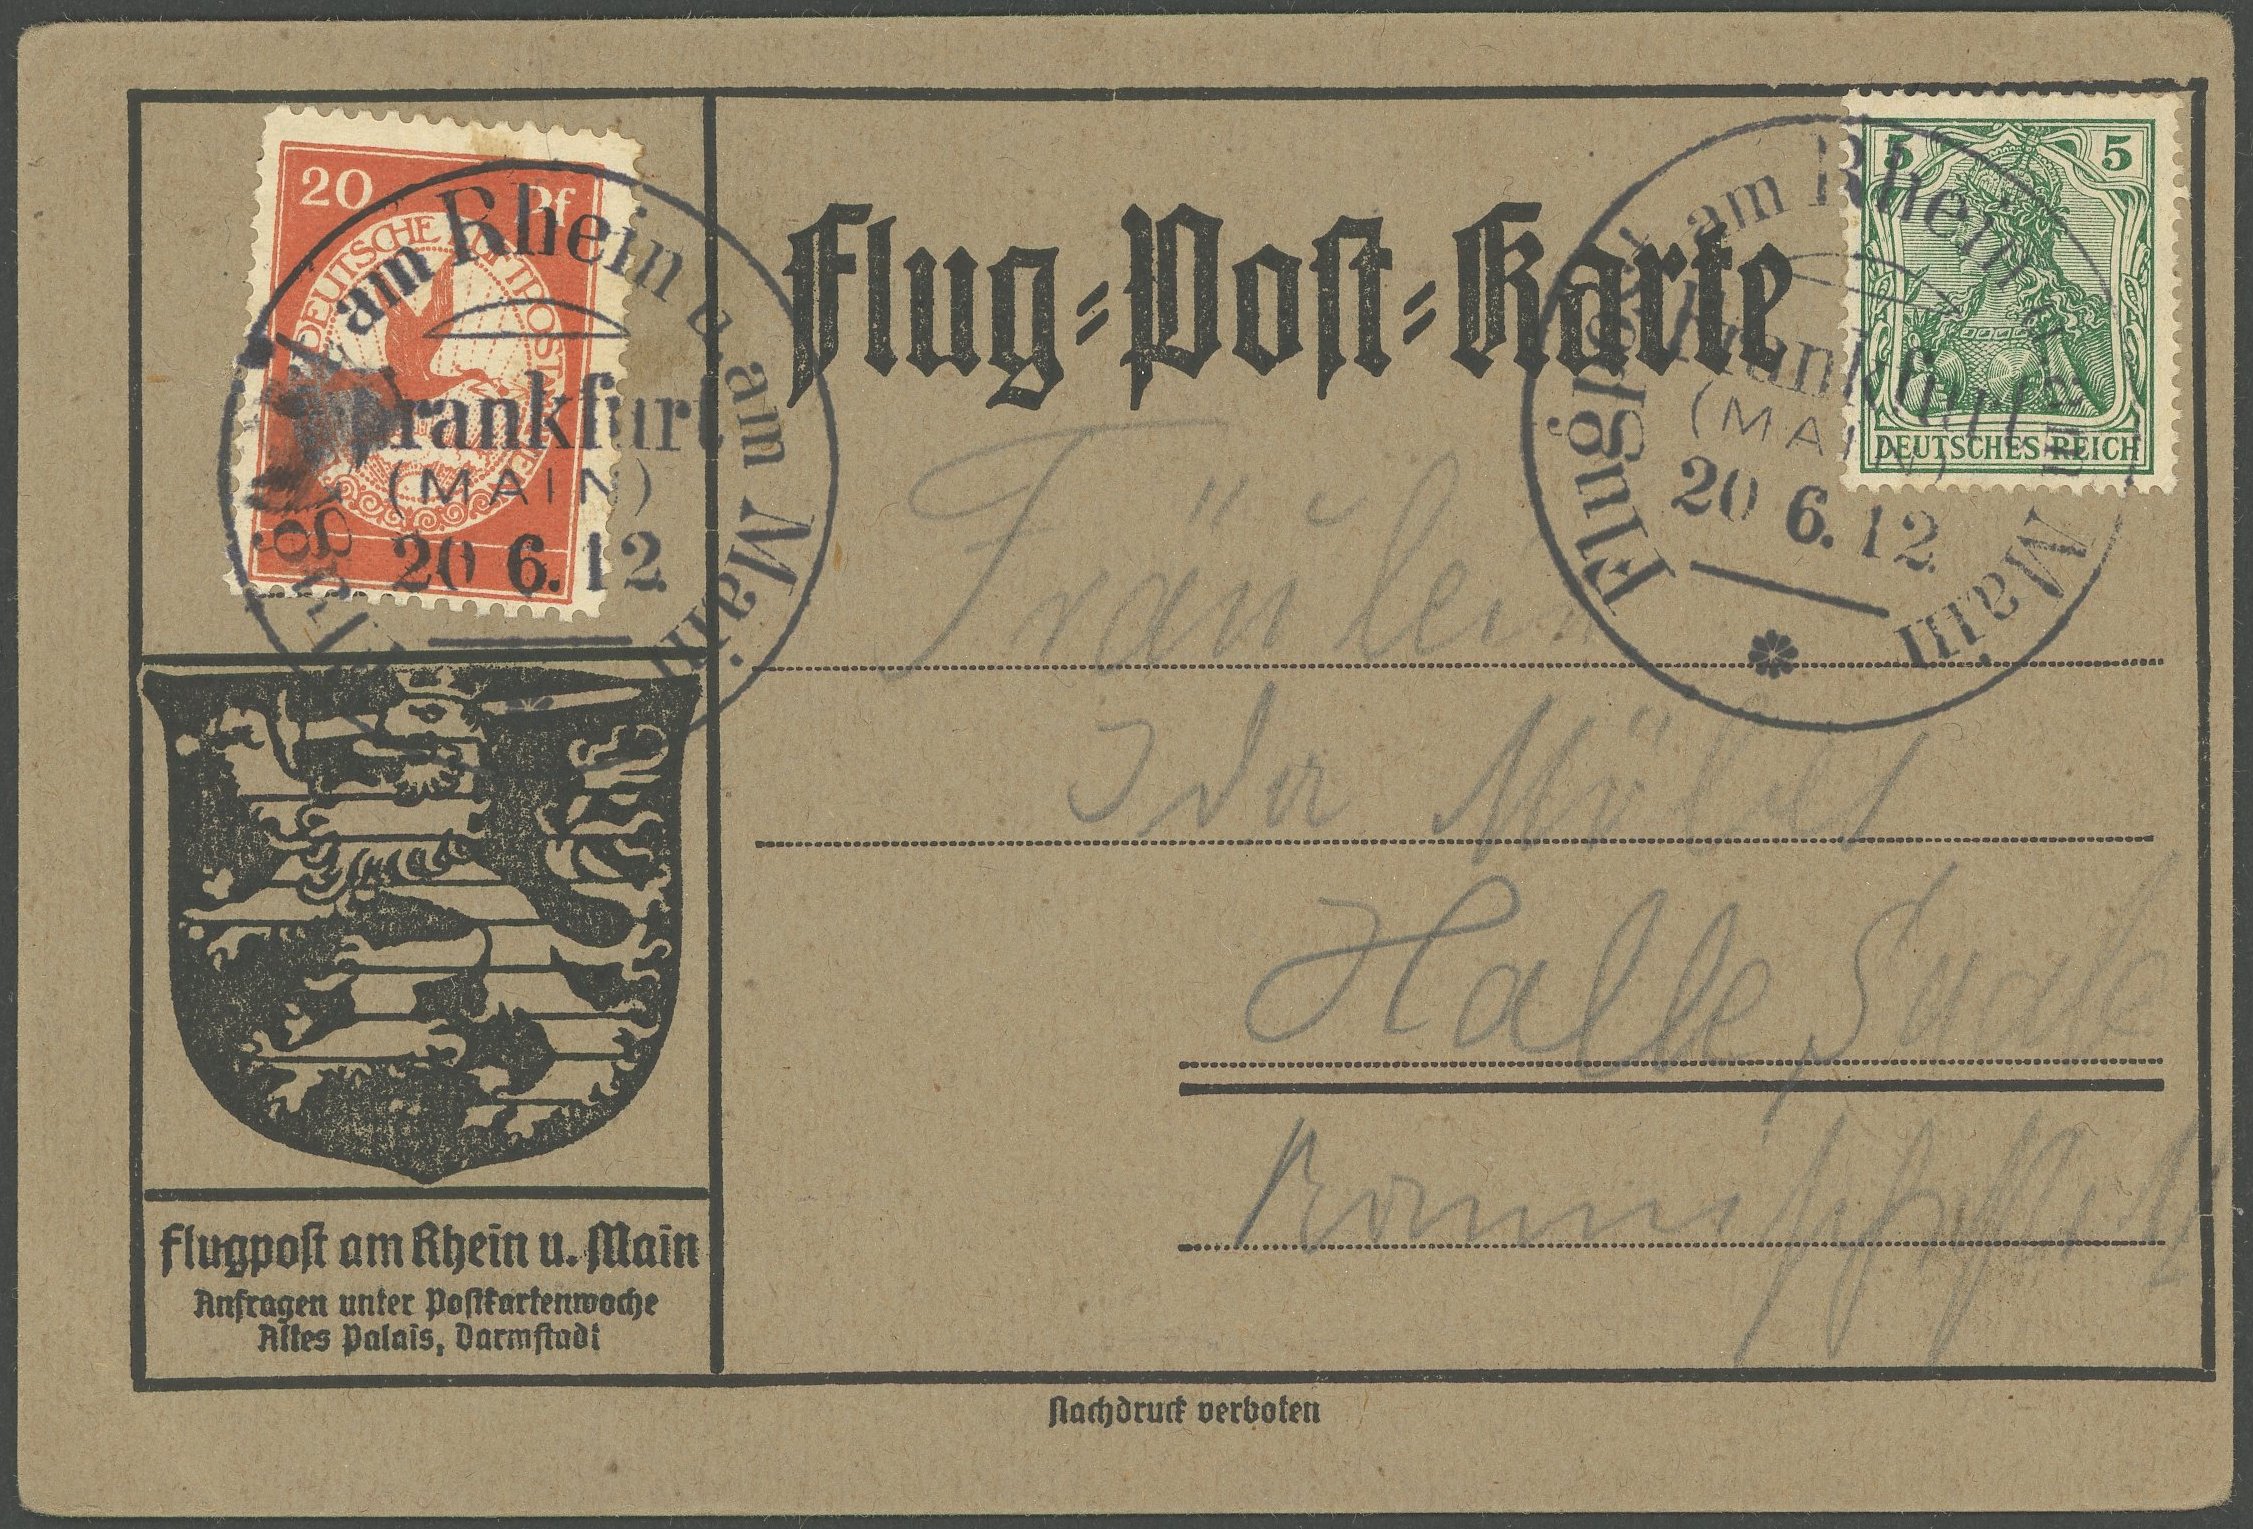 20 Pf
DEUTSCHE FLUGPOST AM
Flugpost am Rhein u. am Main
Frankfurt
(MAIN)
20 6. 12
Flug-Post-Karte
5 5
DEUTSCHES REICH
Flugpost am Rhein u. am Main
Frankfurt
(MAIN)
20 6. 12
Fräulein
Ida
Halle, Saale
Flugpost am Rhein u. Main
Anfragen unter Postkartenwoche
Altes Palais, Darmstadt
Nachdruck verboten